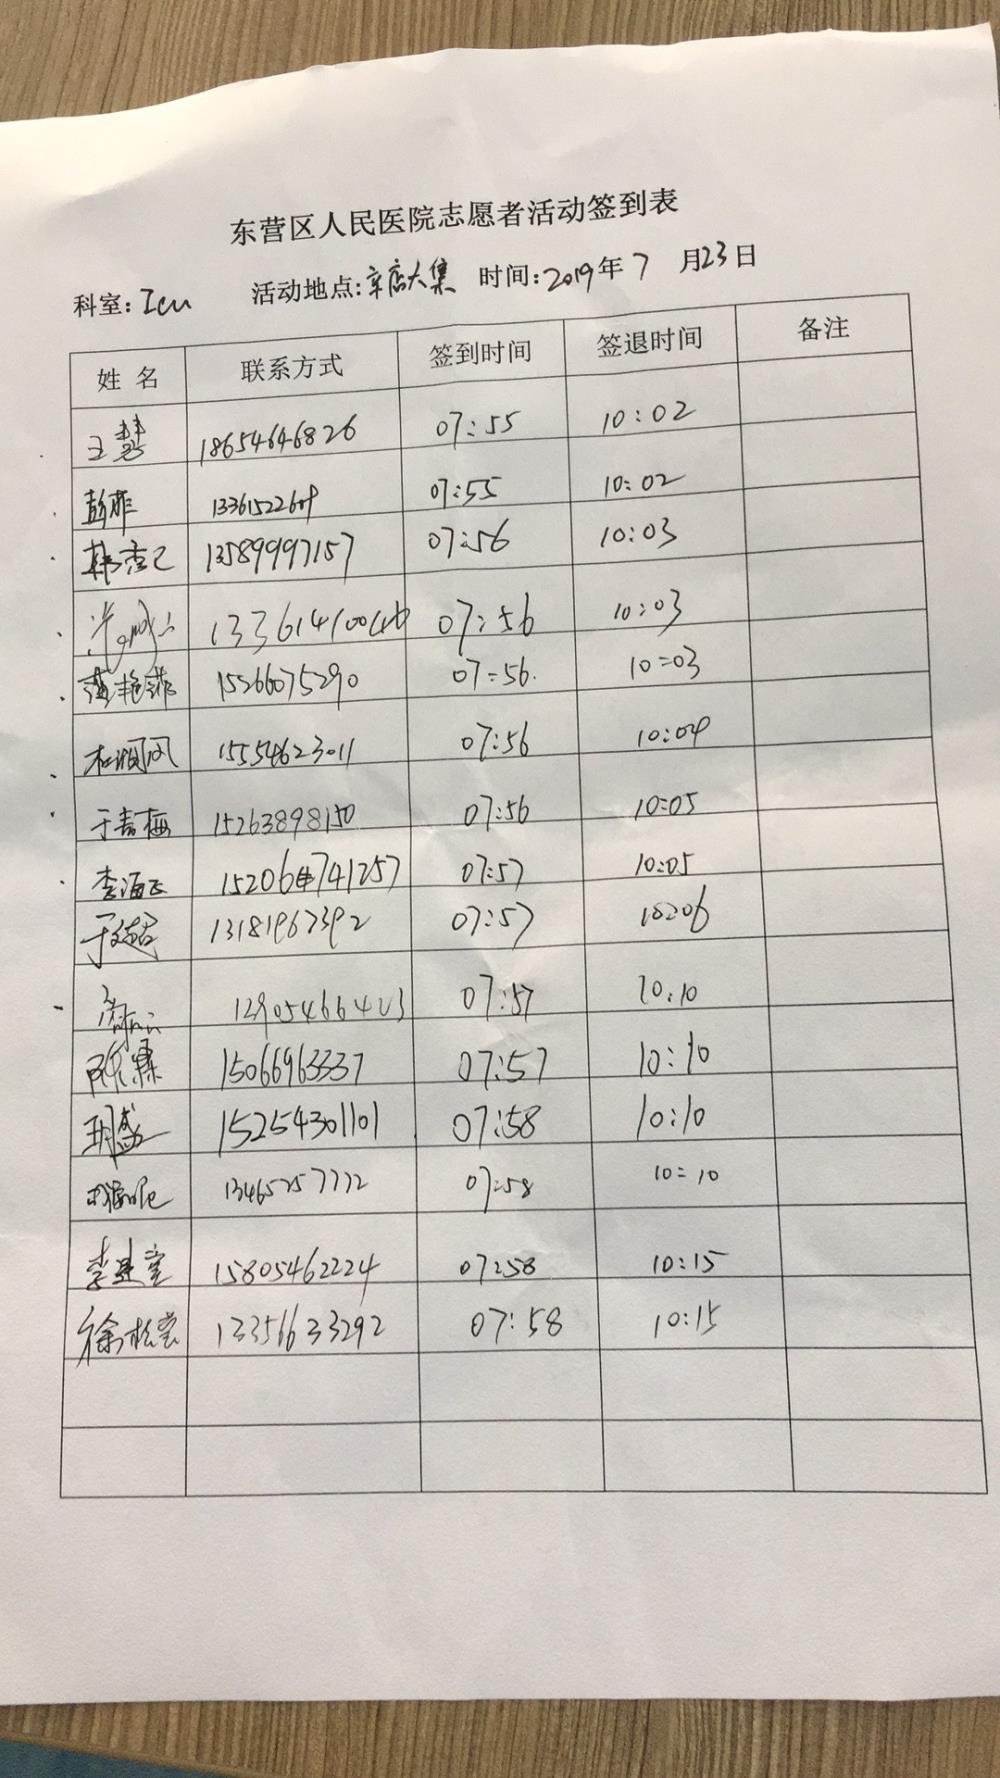 东营区人民医院志愿者活动签到表
科室: Icu 活动地点: 辛店大集 时间: 2019年7月23日
姓名 联系方式 签到时间 签退时间 备注
王慧 18654646826 07:55 10:02
彭菲 07:55 10:02
13589997157 07:56 10:03
07:56 10:03
15266075290 07:56. 10:03
杜顺风 15554623011 07:56 10:04
于春梅 15263898150 07:56 10:05
李海云 07:57 10:05
13181967392 07:57
07:57 10:10
陈霖 15066963337 07:57 10:10
15254301101 07:58 10:10
07:58 10:10
李建莹 15805462224 07:58 10:15
徐松莹 13356633292 07:58 10:15